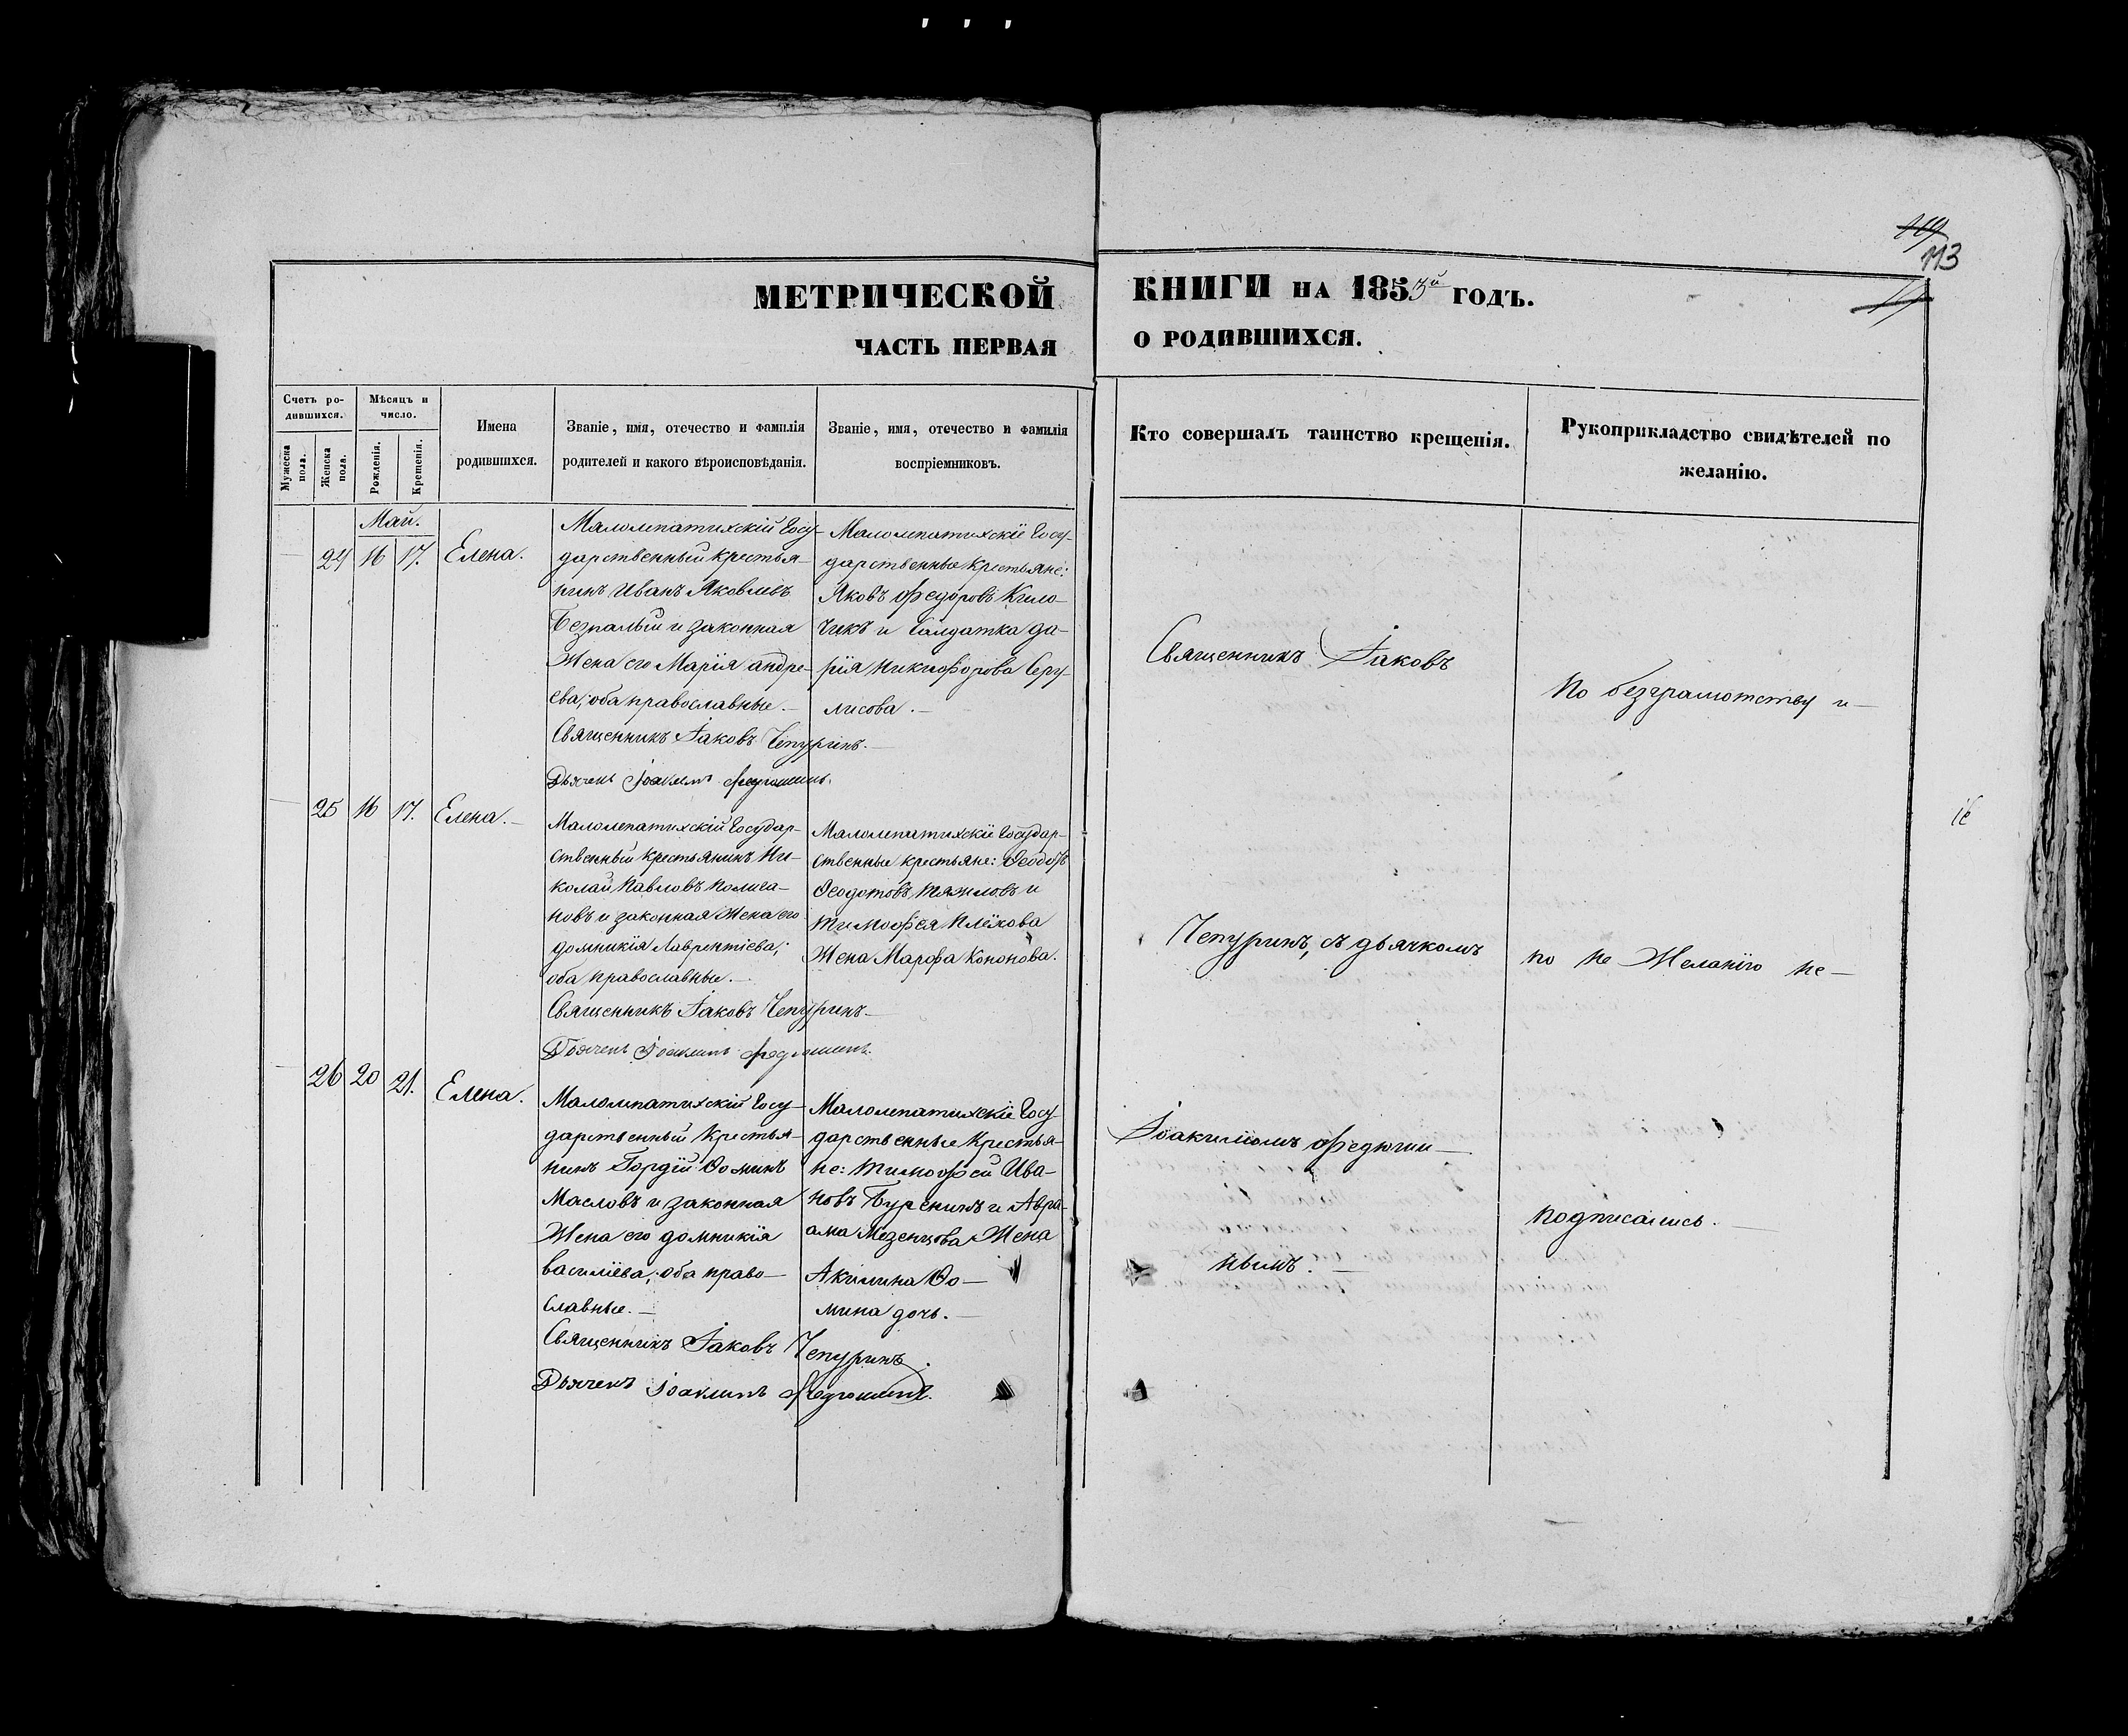 113
МЕТРИЧЕСКОЙ КНИГИ НА 1855й ГОДЪ.
ЧАСТЬ ПЕРВАЯ О РОДИВШИХСЯ.
Счетъ ро-
дившихся.
Мужеска пола.
Женска пола.
Мѣсяцъ и
число.
Рожденія.
Крещенія.
Имена
родившихся.
Званіе, имя, отечество и фамилія
родителей и какого вѣроисповѣданія.
Званіе, имя, отечество и фамилія
воспріемниковъ.
Кто совершалъ таинство крещенія.
Рукоприкладство свидѣтелей по
желанію.
Май.
24 16 17. Елена.
Малолепатихскій Госу-
дарственный крестья-
нинъ Иванъ Яковлевъ
Безпалый и законная
Жена его Марія андре-
ева; оба православные.—
Священникъ Іаковъ Чепуринъ.—
Дьячекъ Іоакимъ Федюшинъ.
Малолепатихскіе Госу-
дарственные крестьяне:
Яковъ Федоровъ Кило-
чикъ и Салдатка да-
рія Никифорова Серу-
лисова.—
25 16 17. Елена.—
Малолепатихскій Государ-
ственный крестьянинъ Ни-
колай Павловъ Полига-
новъ и законная Жена его
домникія Лаврентіева;
оба православные.—
Священникъ Іаковъ Чепуринъ—
Дьячекъ Іоакимъ Федюшинъ.
Малолепатихскіе Государ-
ственные крестьяне: Ѳеодотъ
Ѳеодотовъ Тяжловъ и
Тимофея Плёхова
Жена Марфа Кононова.
26 20 21. Елена.
Малолепатихскій Госу-
дарственный Крестья-
нинъ Гордій Ѳоминъ
Масловъ и законная
Жена его домникія
василіева; оба право-
славные.—
Священникъ Іаковъ Чепуринъ.
Дьячекъ Іоакимъ Федюшинъ.
Малолепатихскіе Госу-
дарственные Крестья-
не: Тимофей Ива-
новъ Буренинъ и Авра-
ама Мезенцова Жена
Акилина Ѳо-
мина дочь.—
Священникъ Іаковъ
Чепуринъ, съ дьячкомъ
Іоакимомъ Федюши-
нымъ.—
По безграмотству и—
по не Желанію не—
подписались.—